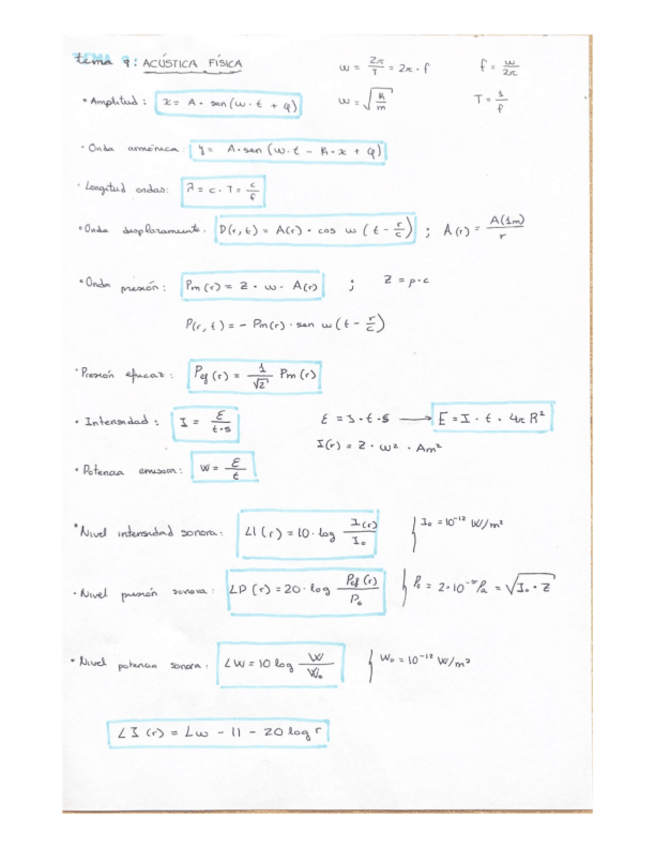 tema 9: ACÚSTICA FÍSICA
ω = 2π/T = 2π · f
f = ω/2π
• Amplitud: x = A · sen(ω · t + φ)
ω = √(k/m)
T = 1/f
• Onda armónica: y = A · sen (ω · t − k · x + φ)
• Longitud ondas: λ = c · T = c/f
• Onda desplazamiento: D(r,t) = A(r) · cos ω (t − r/c) ; A(r) = A(1m)/r
• Onda presión: Pm(r) = Z · ω · A(r) ; Z = ρ · c
P(r,t) = − Pm(r) · sen ω (t − r/c)
• Presión eficaz: Pef (r) = 1/√2 Pm(r)
• Intensidad: I = E/t·S
E = I · t · S → E = I · t · 4π R²
I(r) = Z · ω² · Am²
• Potencia emisión: W = E/t
• Nivel intensidad sonora: LI (r) = 10 · log I(r)/I₀
I₀ = 10⁻¹² W/m²
• Nivel presión sonora: LP (r) = 20 · log Pef (r)/P₀
P₀ = 2·10⁻⁵ Pa = √I₀ · Z
• Nivel potencia sonora: LW = 10 log W/W₀
W₀ = 10⁻¹² W/m²
LI (r) = Lw − 11 − 20 log r